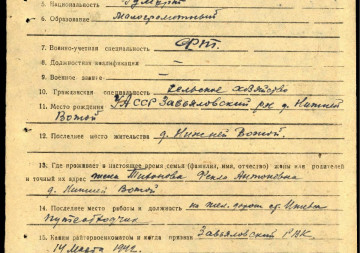 5. Национальность Удмурт
6. Образование малограмотный
7. Военно-учетная специальность
8. Должностная квалификация —
9. Военное звание —
10. Гражданская специальность сельское хозяйство
11. Место рождения УАССР Завьяловский р-н д. Нижней
Вотой
12. Последнее место жительства д. Нижней Вотой.
13. Где проживает в настоящее время семья (фамилия, имя, отчество) жены или родителей
и точный их адрес жена Тихонова Фекла Антоновна
д. Нижней Вотой
14. Последнее место работы и должность на жел. дороге ст.
путеобходчик
15. Каким райгорвоенкоматом и когда призван Завьяловский РВК
14 марта 1942 г.